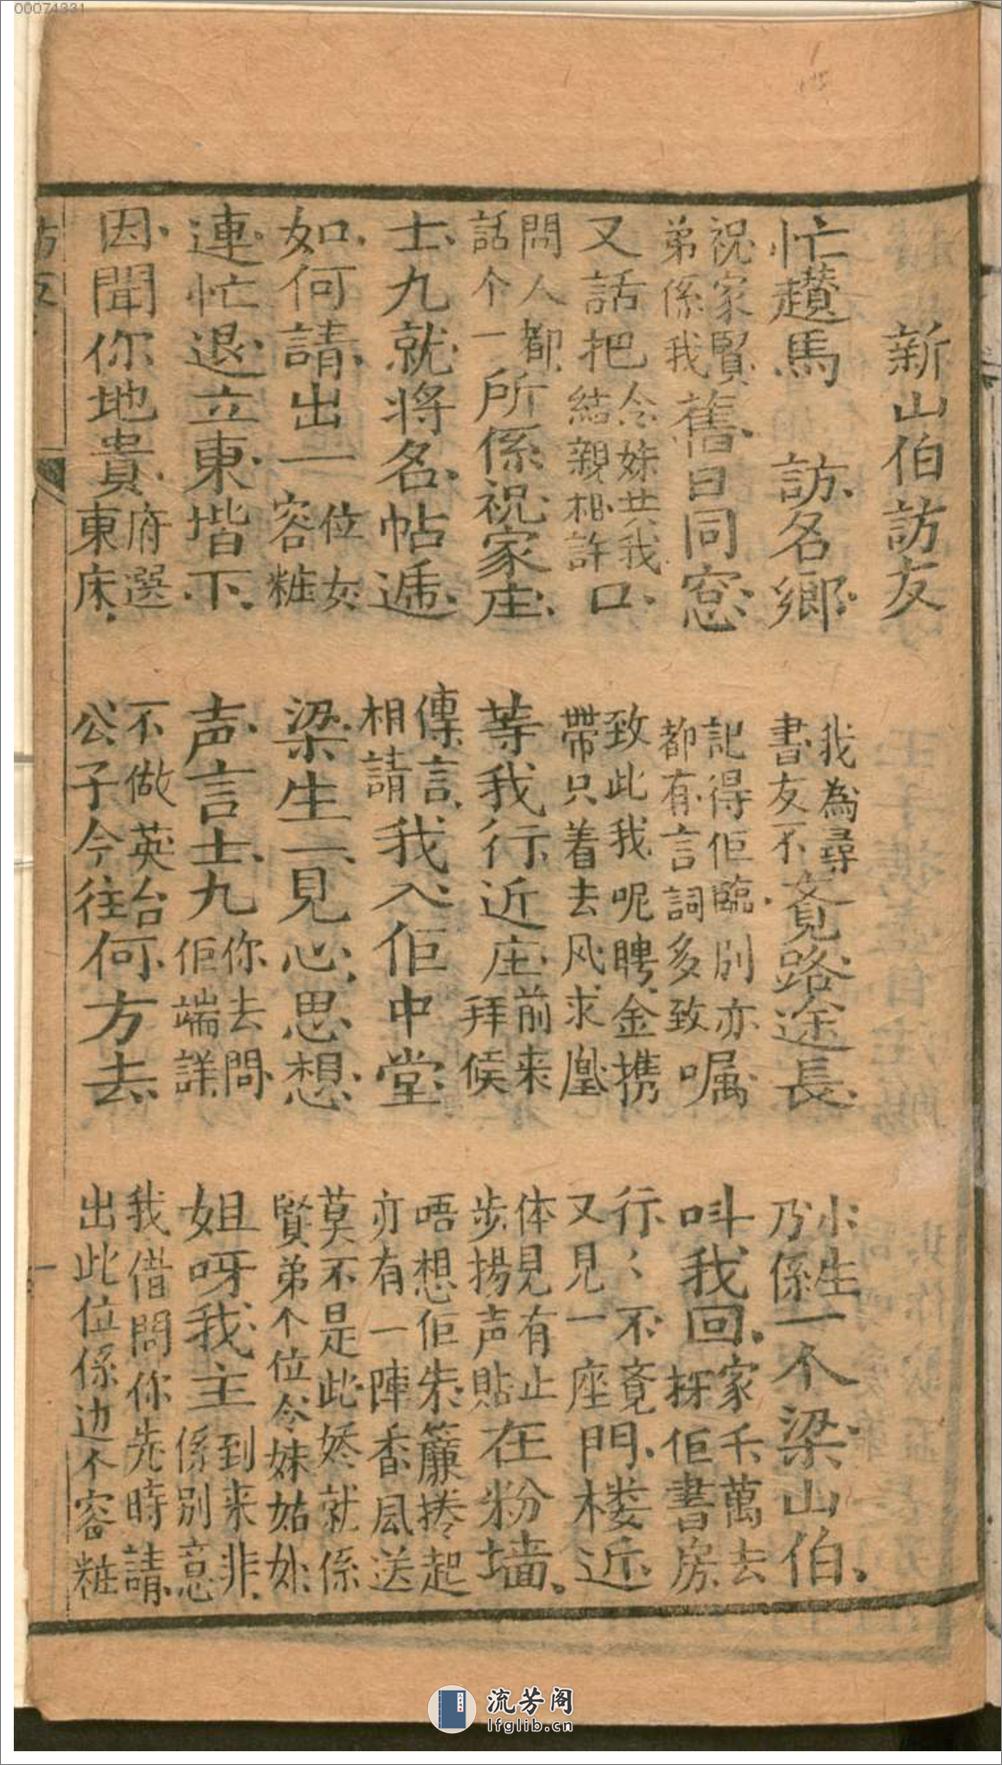 00074331
新山伯訪友
忙趲馬 訪名鄉 我為尋書友不覺路途長 小生乃係一个梁山伯
祝家賢弟係我舊日同窓 記得佢臨別亦都有言詞多致嘱 叫我回家千萬去探佢書房
又話把令妹共我結親相許口 致此我呢聘金携帶只着去风求凰 行〻不竟又見一座門楼近
問人都話个一所係祝家庄 等我行近庄前来拜候 体見有止步揚声貼在粉墙
士九就將名帖遞 傳言相請我入佢中堂 唔想佢朱簾捲起亦有一陣香風送
如何請出一位女容粧 梁生一見心思想 莫不是此娇就係賢弟个位令妹姑娘
連忙退立東堦下 声言士九你去問佢端詳 姐呀我主到来非係别意
因聞你地貴府選東床 不做英台公子今往何方去 我借問你先時請出此位係边个容粧
訪友
流芳阁
lfglib.cn